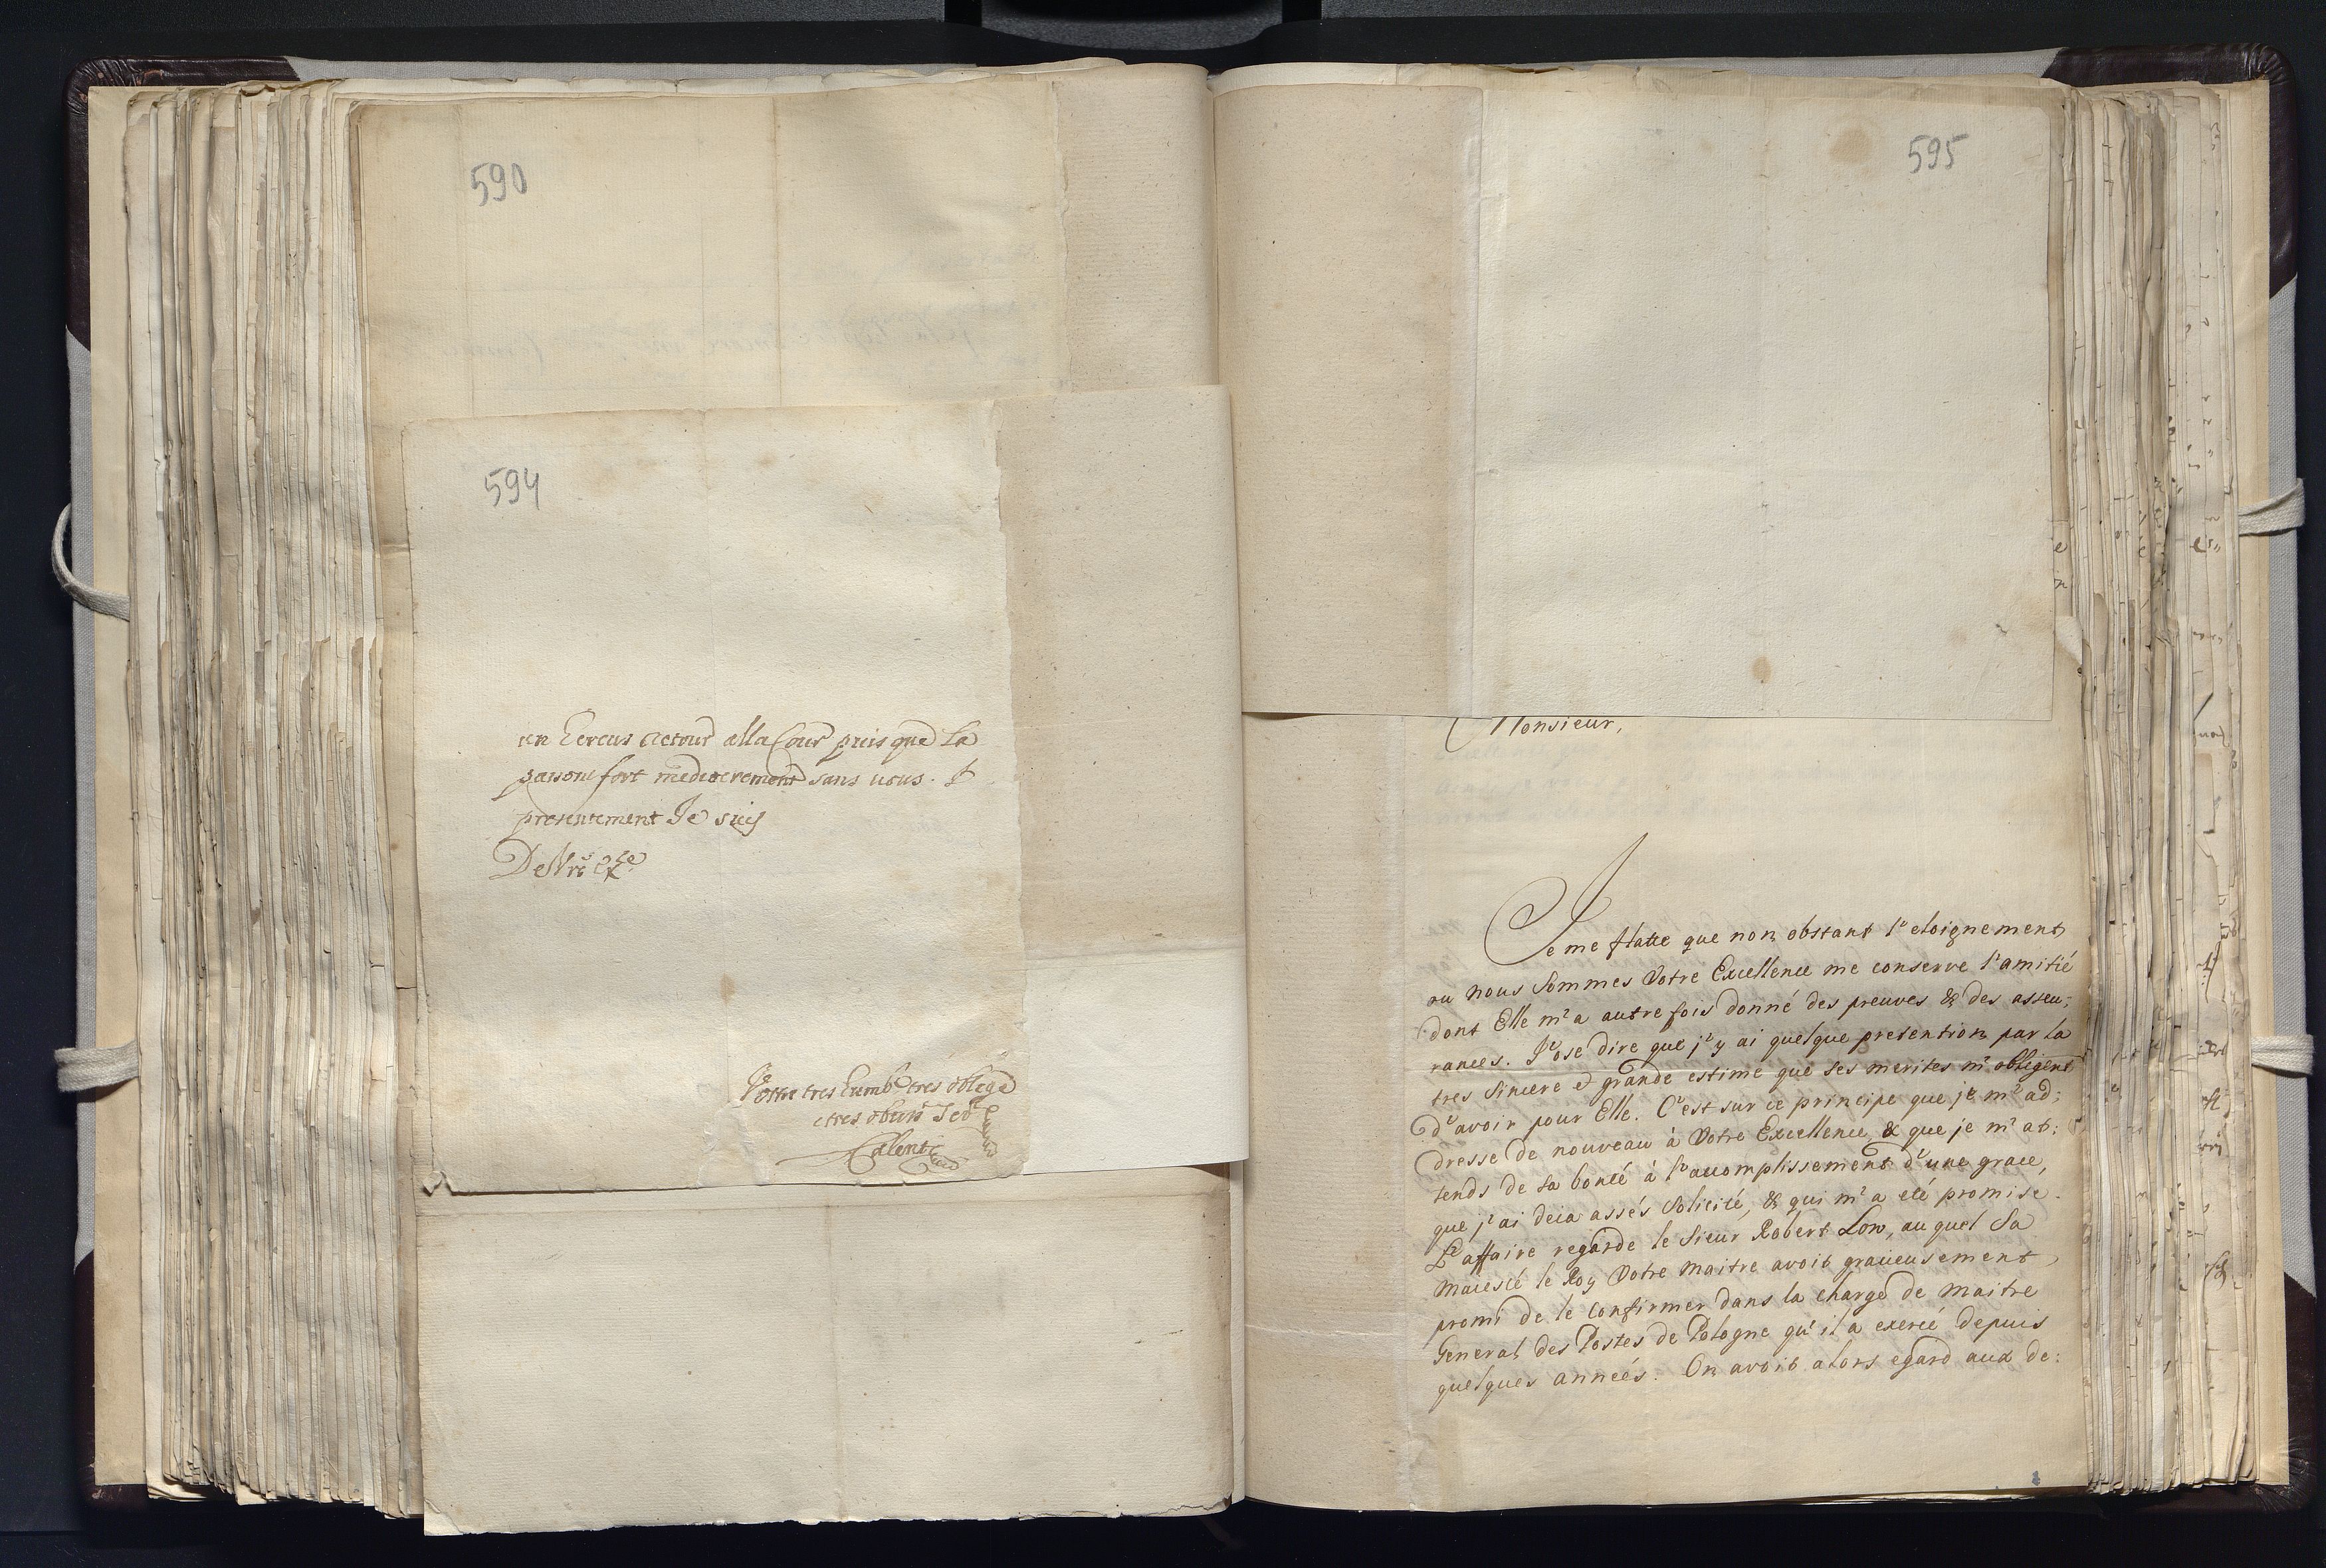 590
594
un retour alla Cour puis que la
fort mediocrement sans vous. &
presentement Je suis
De Vre Exce
Votre tres humb tres oblegé
etres obeis ser
Talenti
595
Monsieur,
Je me flatte que non obstant l'eloignement
ou nous sommes Votre Excellence me conserve l'amitié
dont Elle m'a autre fois donné des preuves & des asseu;
rances. J'ose dire que j'y ai quelque pretention par la
tres sincere et grande estime que ses merites m'obligent
d'avoir pour Elle. C'est sur ce principe que je m'ad;
dresse de nouveau à Votre Excellence & que je m'at:
tends de sa bonté à l'accomplissement d'une grace,
que j'ai deia assés solicité, & qui m'a eté promise.
L'affaire regarde le Sieur Robert Low, au quel Sa
Maiesté le Roy Votre Maitre avoit gracieusement
promi de le confirmer dans la charge de Maitre
General des Postes de Pologne qu'il a exercé depuis
quelques années. On avoit alors egard aux de: